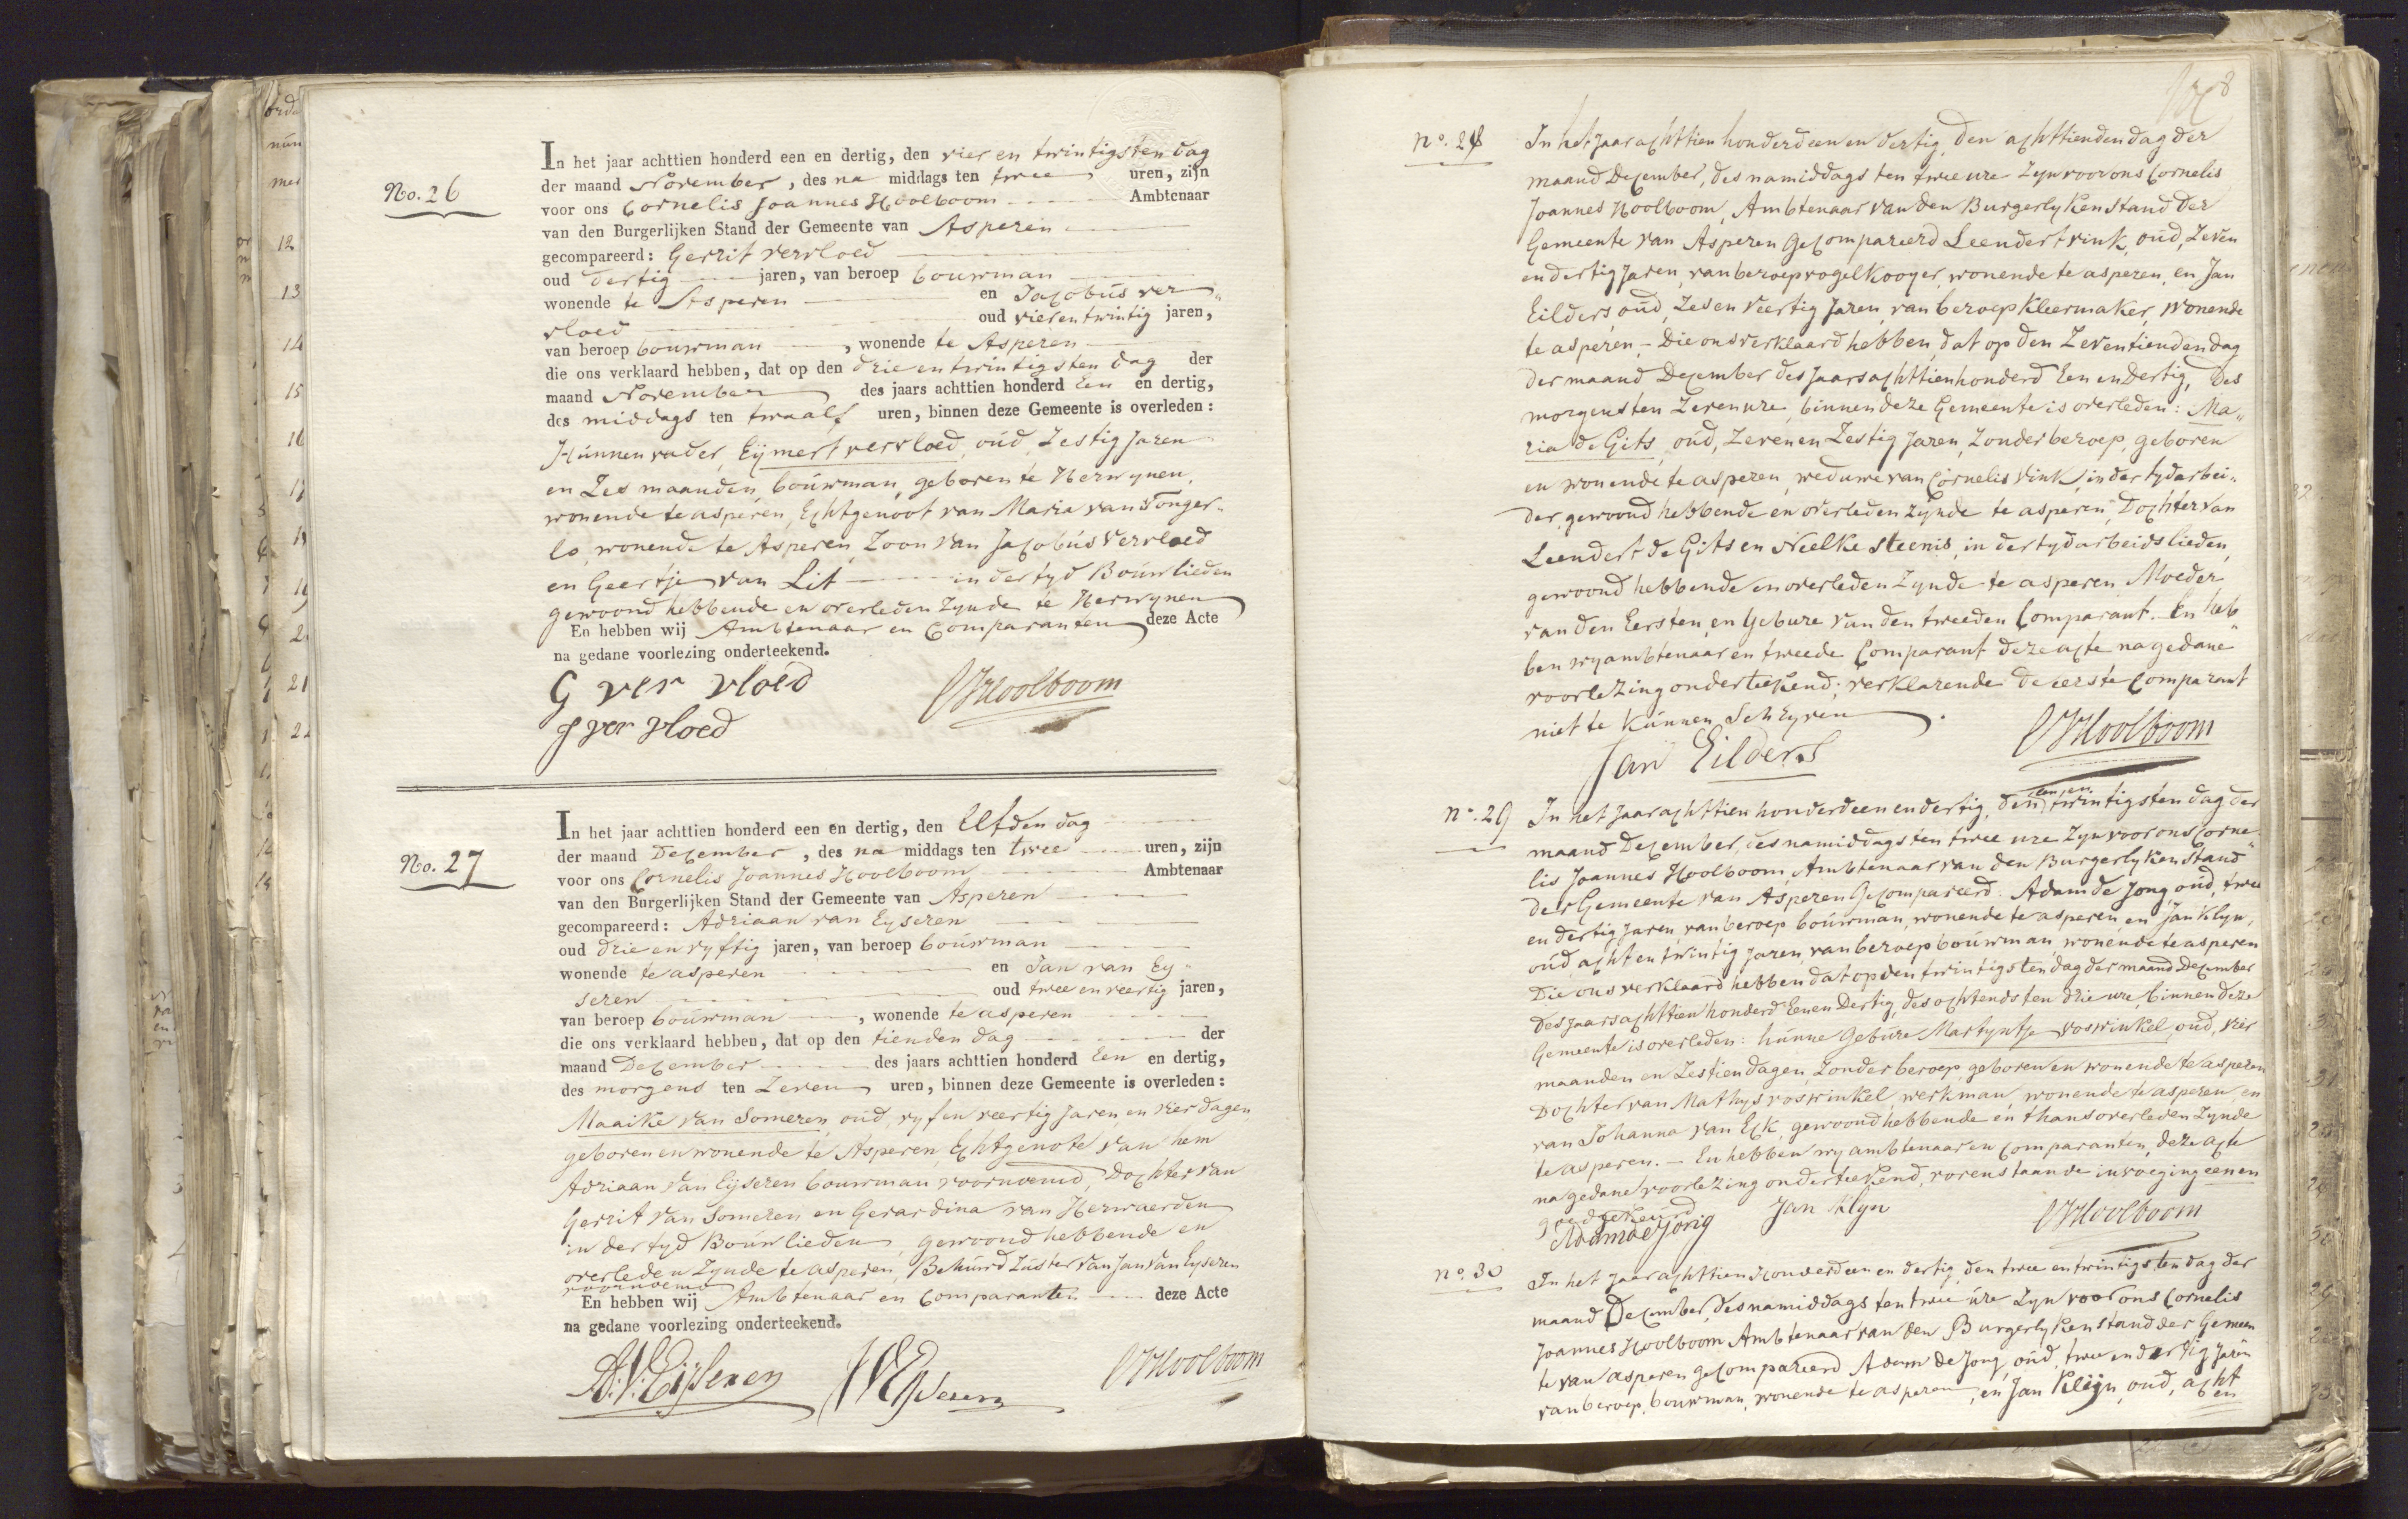 No. 26
In het jaar achttien honderd een en dertig, den vier en twintigsten dag
der maand November, des na middags ten twee uren, zijn
voor ons Cornelis Joannes Hoolboom Ambtenaar
van den Burgerlijken Stand der Gemeente van Asperen
gecompareerd: Gerrit vervloed
oud dertig jaren, van beroep bouwman
wonende te Asperen en Jacobus ver„
vloed oud vierentwintig jaren,
van beroep bouwman, wonende te Asperen
die ons verklaard hebben, dat op den drie en twintigsten dag der
maand November des jaars achttien honderd Een en dertig,
des middags ten twaalf uren, binnen deze Gemeente is overleden:
Hunnen vader, Eijmert vervloed, oud, Zestig Jaren
en Zes maanden, bouwman, geboren te Herwynen,
wonende te asperen, Echtgenoot van Maria van Tonger„
lo, wonende te Asperen, Zoon van Jacobus Vervloed
en Geertje van Lit in der tyd Bouwlieden
gewoond hebbende en overleden Zynde te Herwynen
En hebben wij Ambtenaar en Comparanten deze Acte
na gedane voorlezing onderteekend.
G ver vloed CJHoolboom
J ver vloed
No. 27
In het jaar achttien honderd een en dertig, den Elfden dag
der maand December, des na middags ten twee uren, zijn
voor ons Cornelis Joannes Hoolboom Ambtenaar
van den Burgerlijken Stand der Gemeente van Asperen
gecompareerd: Adriaan van Eyseren
oud drie en vyftig jaren, van beroep bouwman
wonende te asperen en Jan van Ey„
seren oud twee en veertig jaren,
van beroep bouwman, wonende te asperen
die ons verklaard hebben, dat op den tienden dag der
maand December des jaars achttien honderd Een en dertig,
des morgens ten Zeven uren, binnen deze Gemeente is overleden:
Maaike van Someren, oud, vyf en veertig Jaren, en vier dagen
geboren en wonende te Asperen, Echtgenote van hem
Adriaan van Eijseren bouwman voornoemd, Dochter van
Gerrit van Someren en Gerardina van Herwaerden
in der tyd Bouwlieden, gewoond hebbende en
overleden Zynde te asperen, Behuwd Zuster van Jan van Eyseren
voornoemd
En hebben wij Ambtenaar en Comparanten deze Acte
na gedane voorlezing onderteekend.
A.V. Eijseren JVEyseren CJHoolboom
no. 28
In het Jaar achttien honderd een en dertig, den achttienden dag der
maand December, des namiddags ten twee ure Zyn voor ons Cornelis
Joannes Hoolboom, Ambtenaar van den Burgerlyken Stand der
Gemeente van Asperen Gecompareerd Leendert vink, oud, Zeven
en dertig Jaren, van beroep vogelkooyer, wonende te asperen, en Jan
Eilders, oud, Zes en Veertig Jaren, van beroep Kleermaker, wonende
te asperen, - Die ons verklaard hebben, dat op den Zeventienden dag
der maand December des Jaars achttienhonderd Een en Dertig, des
morgens ten Zeven ure, binnen deze Gemeente is overleden: Ma„
ria de Gits, oud, Zeven en Zestig Jaren, Zonder beroep, geboren
en wonende te asperen, weduwe van Cornelis Vink, in der tyd arbei„
der, gewoond hebbende en overleden Zynde te asperen, Dochter van
Leendert de Gits en Neelke Steenis, in der tyd arbeidslieden,
gewoond hebbende en overleden Zynde te asperen, Moeder
van den Eersten, en Gebure van den tweeden Comparant. En heb„
ben wy ambtenaar en tweede Comparant deze acte na gedane
voorlezing onderteekend, verklarende de eerste Comparant
niet te kunnen Schryven.
Jan Eilders CJHoolboom
no. 29
een en
In het Jaar achttien honderd een en dertig, den twintigsten dag der
maand December, des namiddags ten twee ure Zyn voor ons Corne„
lis Joannes Hoolboom, Ambtenaar van den Burgerlyken Stand
der Gemeente van Asperen Gecompareerd: Adam de Jong, oud, twee
en dertig Jaren, van beroep bouwman, wonende te asperen, en Jan Klyn,
oud acht en twintig Jaren, van beroep bouwman, wonende te asperen
Die ons verklaard hebben dat op den twintigsten dag der maand December
des Jaars achttien honderd Een en Dertig, des ochtends ten drie ure, binnen deze
Gemeente is overleden: hunne Gebure Martyntje voswinkel, oud, vier
maanden en Zestien dagen, Zonder beroep, geboren en wonende te asperen
Dochter van Mathys voswinkel, werkman, wonende te asperen, en
van Johanna van Eck, gewoond hebbende en thans overleden Zynde
te asperen. - En hebben wy ambtenaar en Comparanten, deze acte
na gedane voorlezing onderteekend, vorenstaande invoeging een en
goedgekeurd
Adam de Jong Jan Klyn CJHoolboom
no. 30
In het Jaar achttien honderd een en dertig, den twee en twintigsten dag der
maand December, des namiddags ten twee ure Zyn voor ons Cornelis
Joannes Hoolboom Ambtenaar van den Burgerlyken Stand der Gemeen
te van asperen gecompareerd Adam de Jong, oud, twee en dertig Jaren
van beroep, bouwman, wonende te asperen, en Jan Kleijn, oud, acht
en